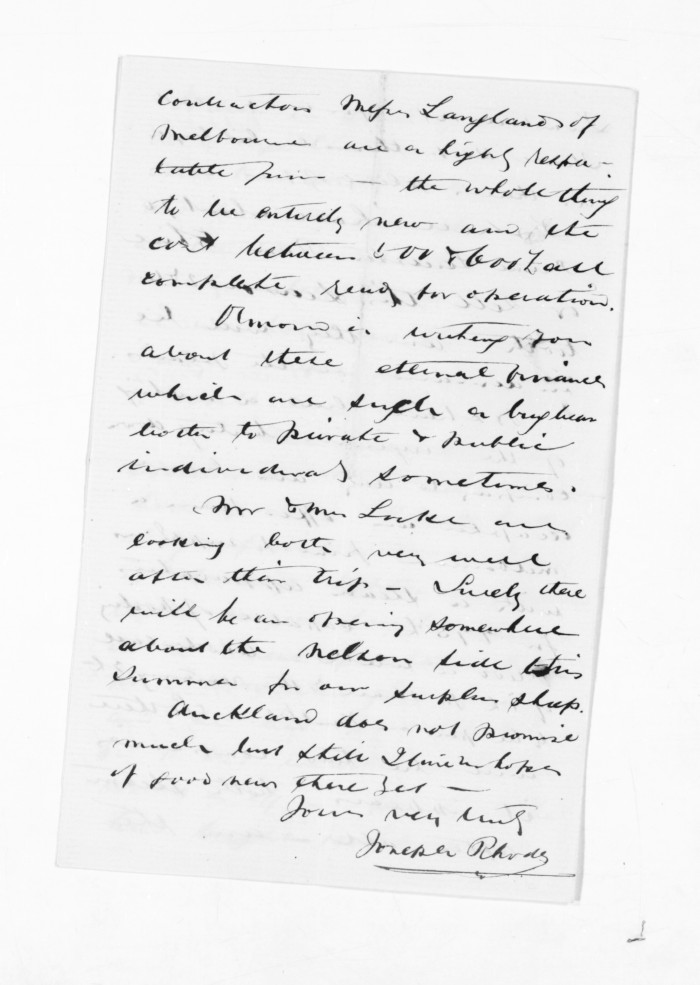 contractors Messrs Langlands of
Melbourne are a highly respec-
table firm — the whole thing
to be entirely new and the
cost between 500 & 600£ all
complete, ready for operation.
Ormond is writing you
about these eternal finances
which are such a bugbear
both to private & public
individuals sometimes.
Mr & Mrs Locke are
looking both very well
after their trip — Surely there
will be an opening somewhere
about the Nelson side this
summer for our surplus sheep.
Auckland does not promise
much but still I live in hopes
of good news there yet —
Yours very truly
Joseph Rhodes